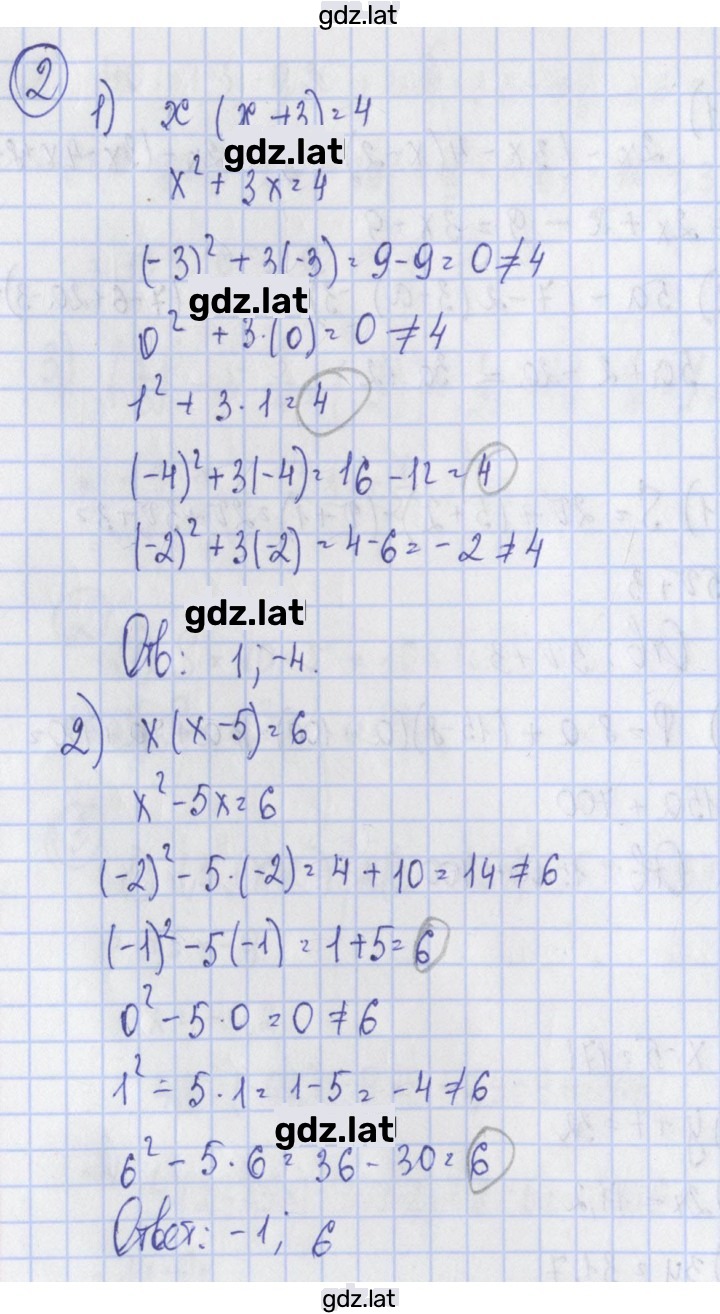 gdz.lat
2
1) x (x+3)=4
gdz.lat
x² + 3x=4
(-3)² + 3(-3)=9-9=0≠4
gdz.lat
0² + 3·(0)=0≠4
1² + 3·1=4
(-4)²+3(-4)=16-12=4
(-2)²+3(-2)=4-6=-2≠4
gdz.lat
Отв: 1; -4.
2) x(x-5)=6
x²-5x=6
(-2)²-5·(-2)=4+10=14≠6
(-1)²-5(-1)=1+5=6
0²-5·0=0≠6
1²-5·1=1-5=-4≠6
gdz.lat
6²-5·6=36-30=6
Ответ: -1; 6
gdz.lat